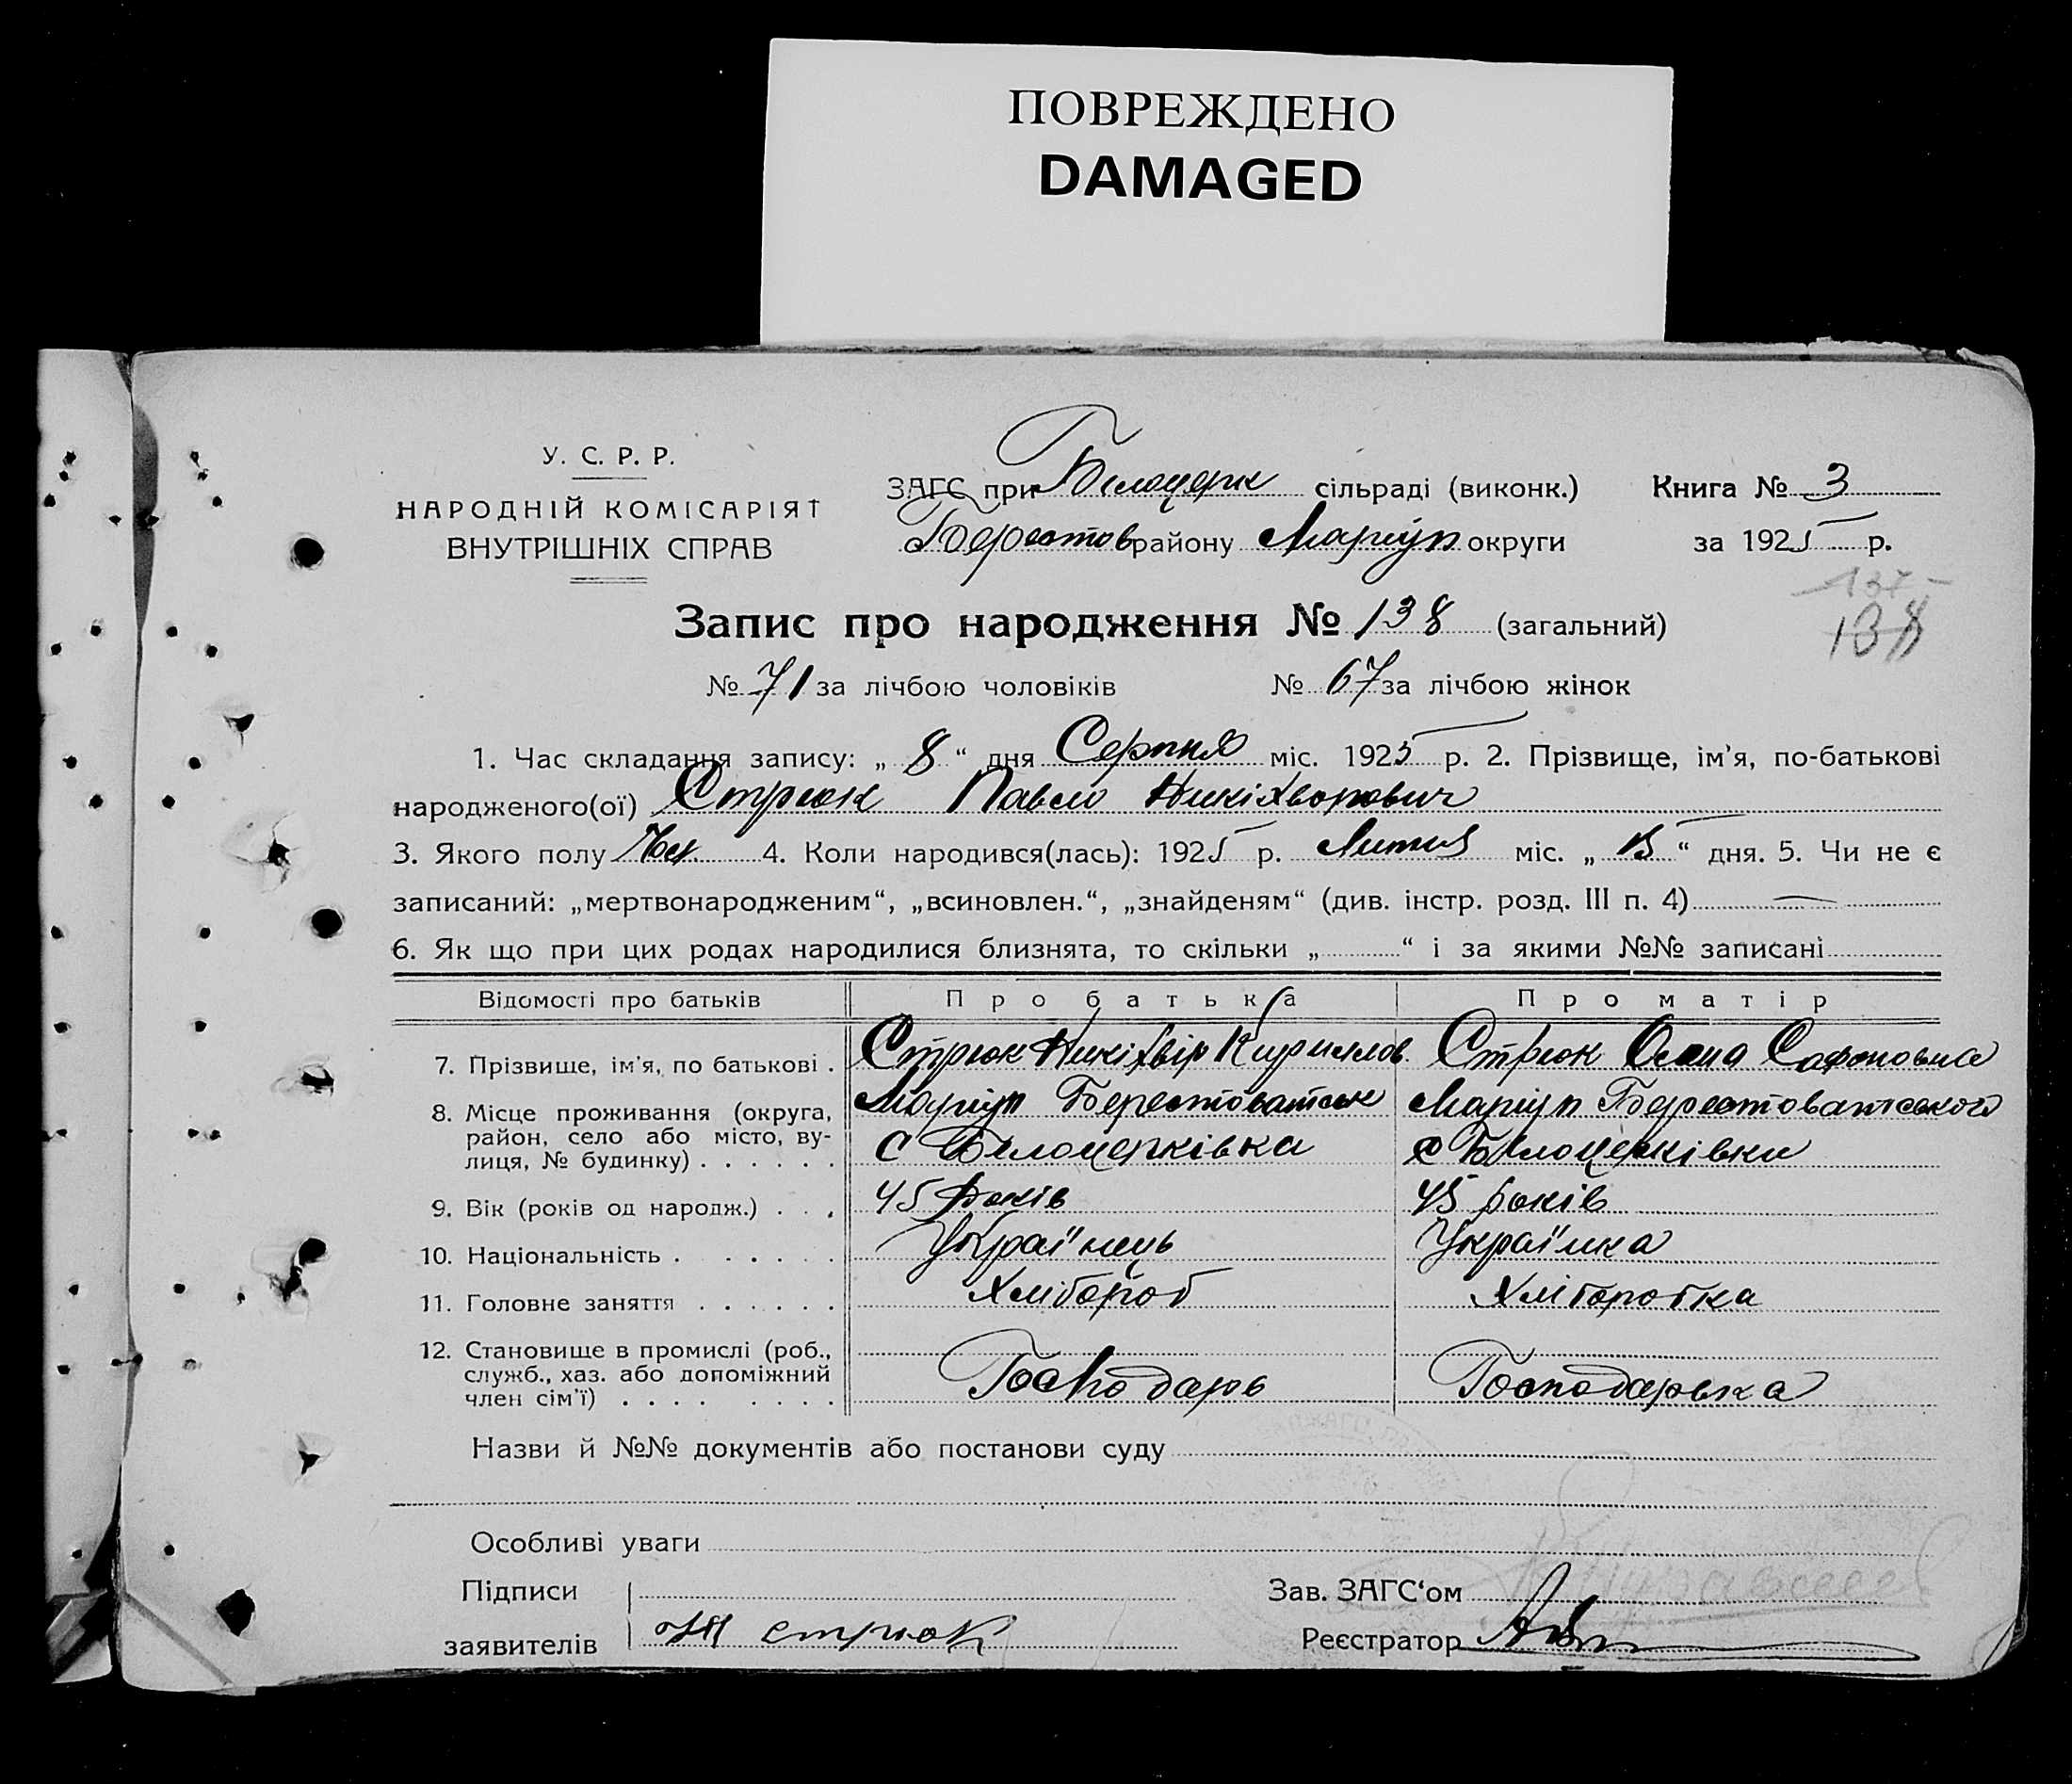 ПОВРЕЖДЕНО
DAMAGED
У. С. Р. Р.
НАРОДНІЙ КОМІСАРІЯТ
ВНУТРІШНІХ СПРАВ
ЗАГС при Білоцерк сільраді (виконк.) Книга № 3
Берестов району Маріуп округи за 1925 р.
Запис про народження № 138 (загальний)
137
138
№ 71 за лічбою чоловіків № 67 за лічбою жінок
1. Час складання запису: „ 8 “ дня Серпня міс. 1925 р. 2. Прізвище, ім'я, по-батькові
народженого(ої) Стрюк Павло Никіхворович
3. Якого полу Чол. 4. Коли народився(лась): 1925 р. Липня міс. „ 15 “ дня. 5. Чи не є
записаний: „мертвонародженим“, „всиновлен.“, „знайденям“ (див. інстр. розд. III п. 4) —
6. Як що при цих родах народилися близнята, то скільки „ “ і за якими №№ записані
Відомості про батьків Про батька Про матір
7. Прізвище, ім'я, по батькові . Стрюк Никіхвір Кириллов. Стрюк Сафоновна
8. Місце проживання (округа, Маріуп Берестоватськ Маріуп Берестоватського
район, село або місто, ву-
лиця, № будинку) . . . . . . с Білоцерківка с Білоцерківки
9. Вік (років од народж.) . . . 45 Років 45 років
10. Національність . . . . . . Українець Українка
11. Головне заняття . . . . . . Хлібороб Хліборобка
12. Становище в промислі (роб.,
служб., хаз. або допоміжний
член сім'ї) . . . . . . . . Господарь Господарька
Назви й №№ документів або постанови суду
Особливі уваги
Підписи Зав. ЗАГС‘ом
заявителів стрюк Реєстратор